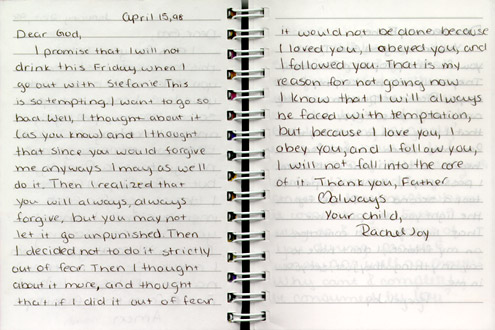 April 15, 98
Dear God,
I promise that I will not
drink this Friday when I
go out with Stefanie This
is so tempting. I want to go so
bad. Well, I thought about it
(as you know) and I thought
that since you would forgive
me anyways I may as well
do it. Then I realized that
you will always, always
forgive, but you may not
let it go unpunished. Then
I decided not to do it strictly
out of fear. Then I thought
about it more, and thought
that if I did it out of fear
it would not be done because
I loved you, I obeyed you, and
I followed you. That is my
reason for not going now
I know that I will always
be faced with temptation,
but because I love you, I
obey you, and I follow you,
I will not fall into the core
of it. Thank you, Father
♡always
Your child,
Rachel Joy